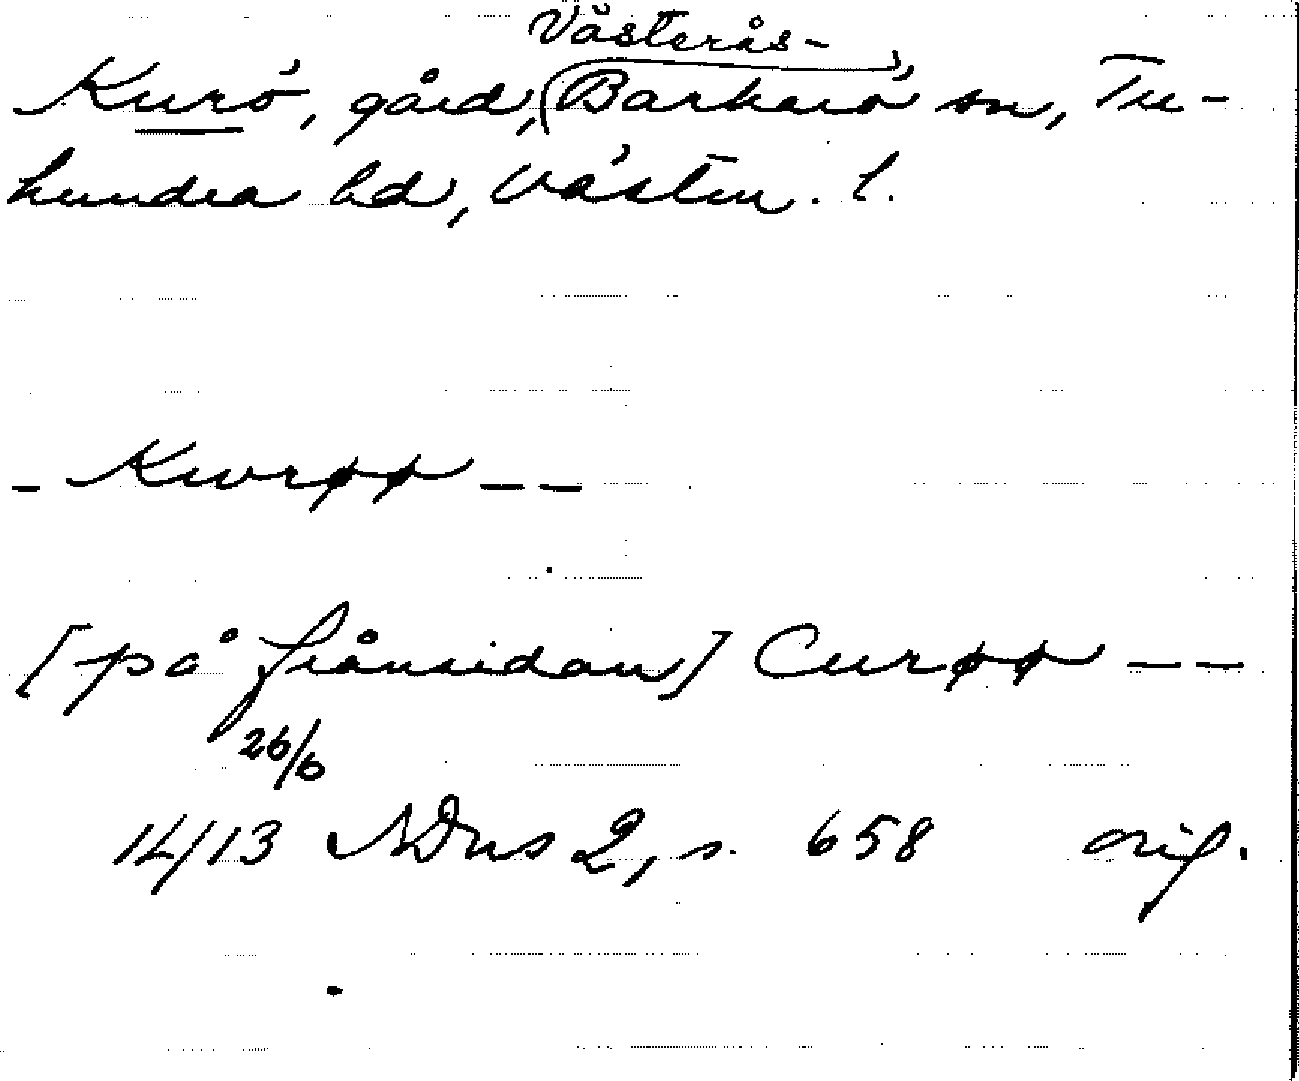 Västerås-
Kurö, gård, (Barkarö sn, Tu-
hundra hd, Västm. l.
- Kwrøø - -
[på frånsidan] Curøø - -
26/6
1413 NDns 2, s. 658 orig.